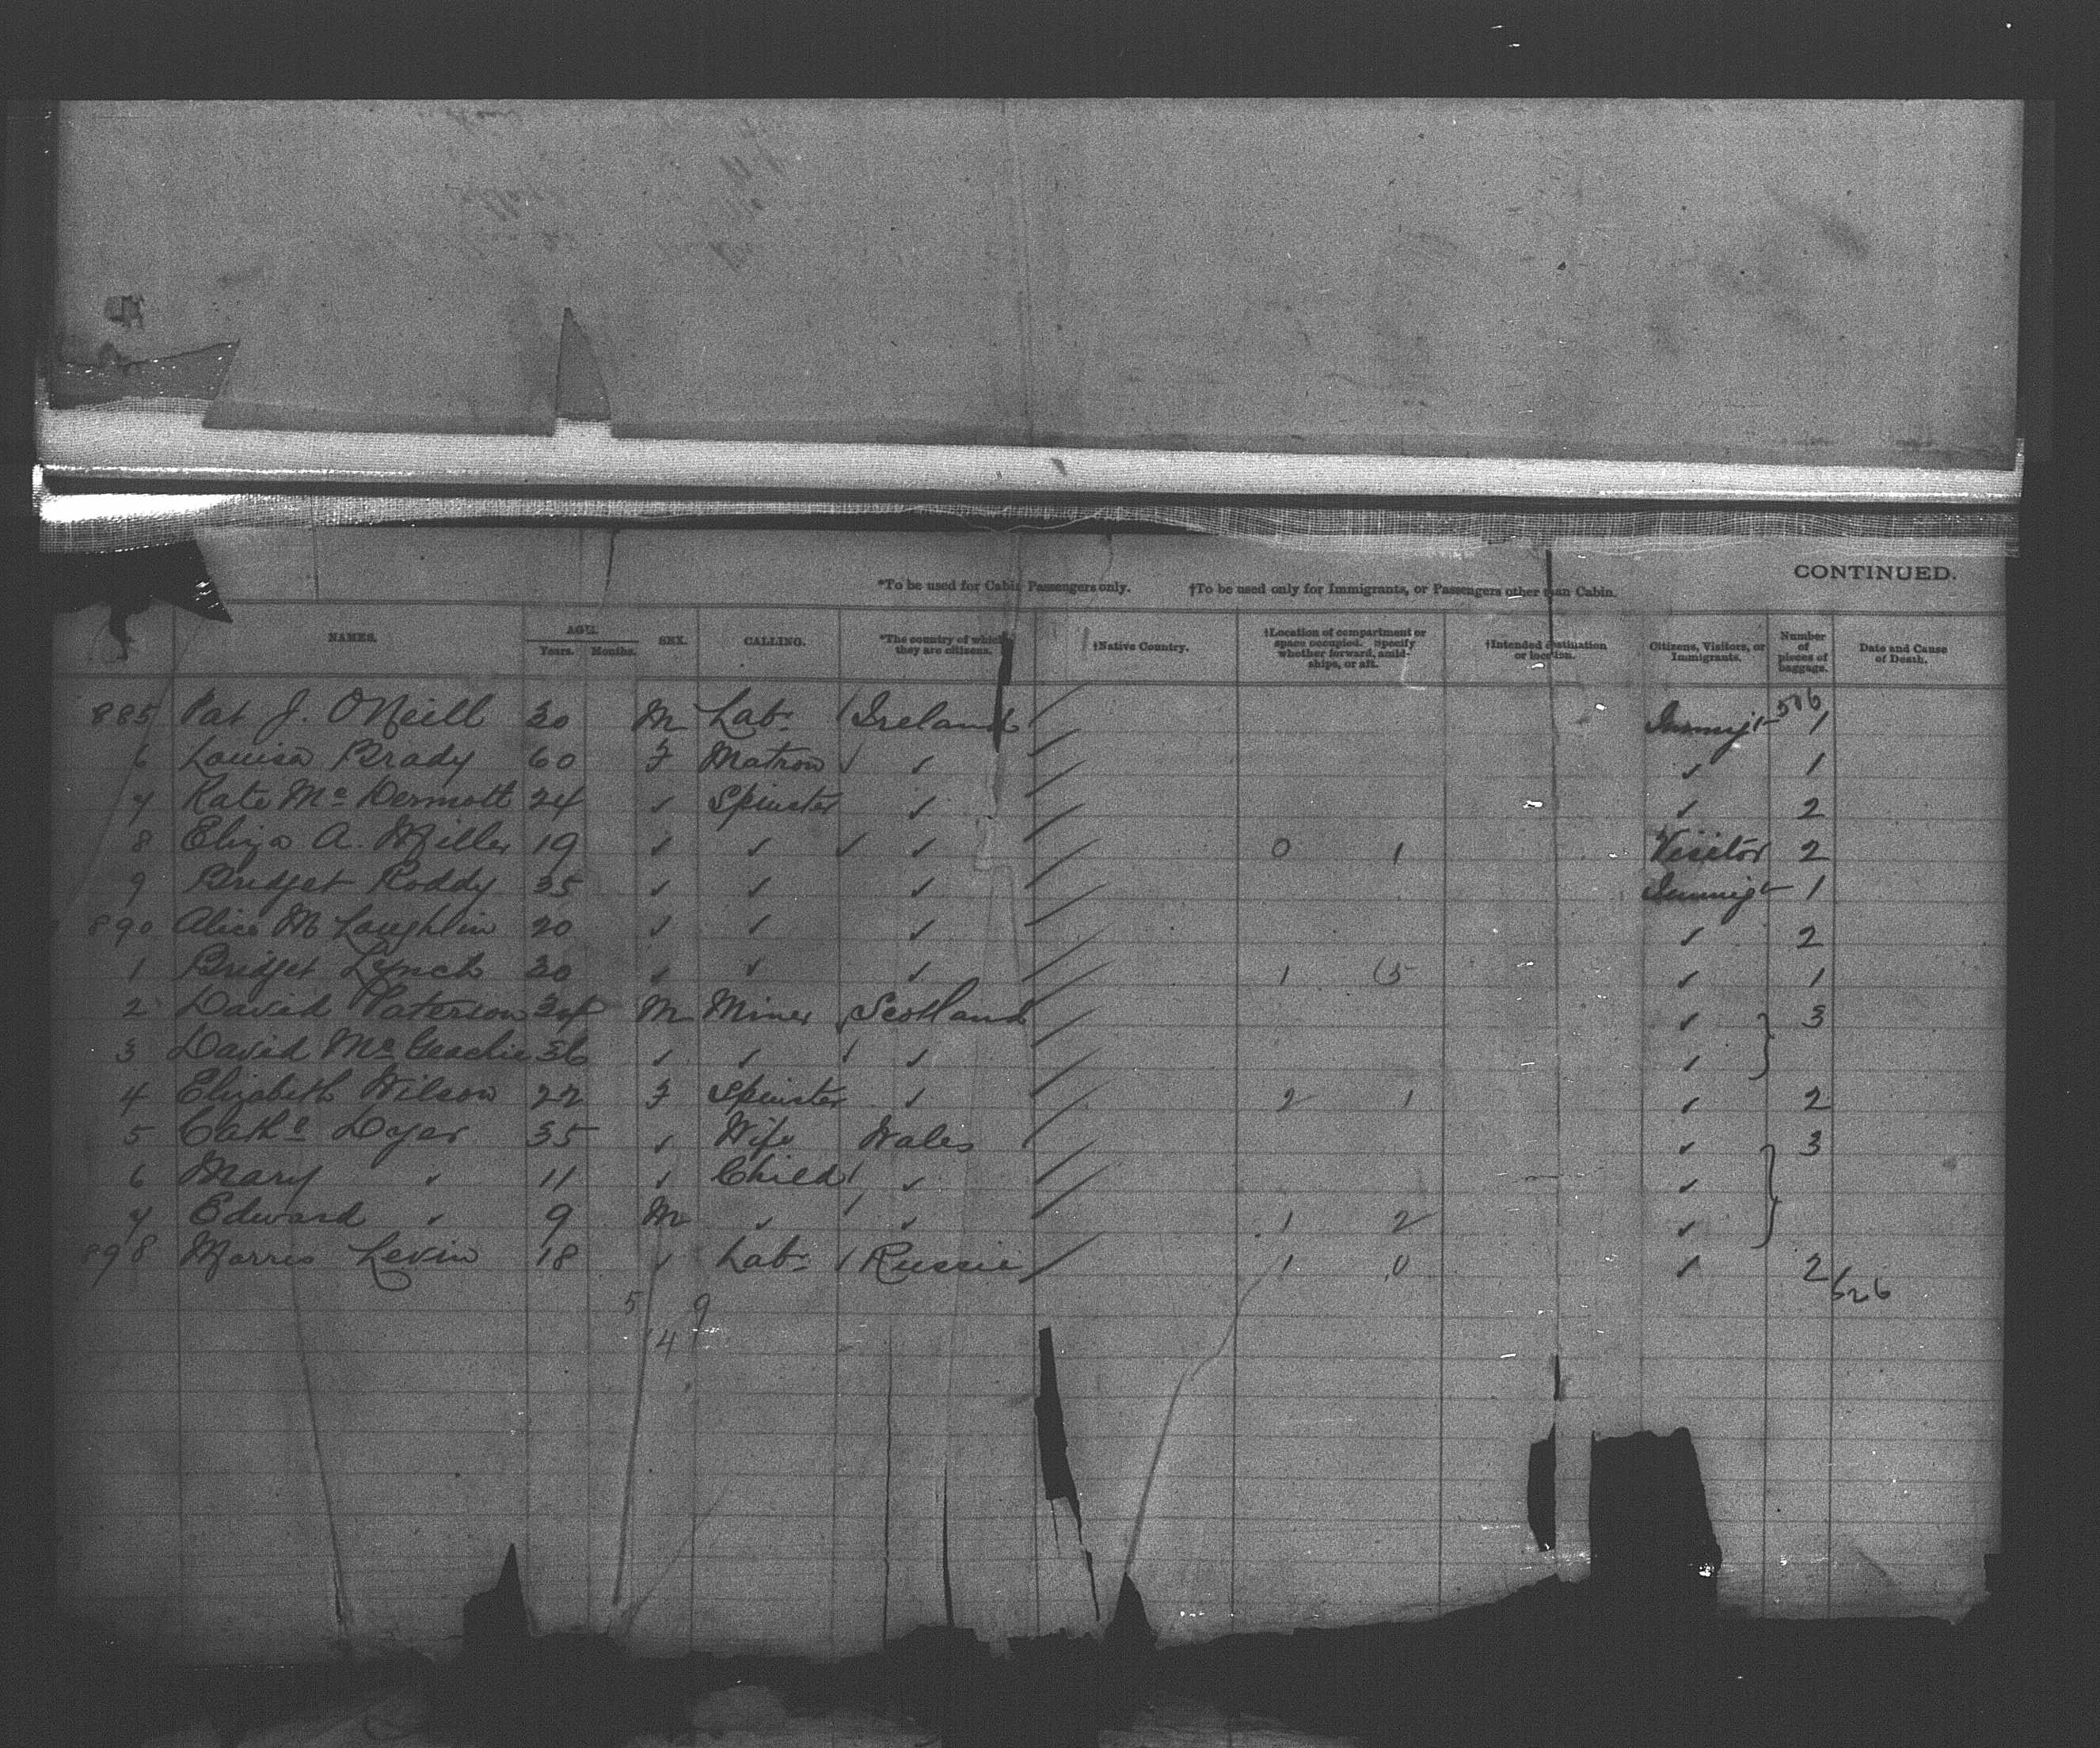 CONTINUED.
*To be used for Cabin Passengers only. †To be used only for Immigrants, or Passengers other than Cabin.
NAMES. AGE. Years. Months. SEX. CALLING. *The country of which they are citizens. †Native Country. †Location of compartment or space occupied. Specify whether forward, amidships, or aft. †Intended destination or location. Citizens, Visitors, or Immigrants. Number of pieces of baggage. Date and Cause of Death.
506
885 Pat J. O'Neill 30 M Lab. Ireland Immigt 1
6 Louisa Brady 60 F Matron ✓ ✓ 1
7 Kate Mc Dermott 24 ✓ Spinster ✓ ✓ 2
8 Eliza A. Miller 19 ✓ ✓ ✓ 0 1 Visitor 2
9 Bridget Roddy 35 ✓ ✓ ✓ Immigt 1
890 Alice M Laughlin 20 ✓ ✓ ✓ ✓ 2
1 Bridget Lynch 30 ✓ ✓ ✓ 1 5 ✓ 1
2 David Paterson 34 M Miner Scotland ✓ 3
3 David Mc 36 ✓ ✓ ✓ ✓
4 Elizabeth Wilson 22 F Spinster ✓ 2 1 ✓ 2
5 Cathe 35 ✓ Wife Wales ✓ 3
6 Mary ✓ 11 ✓ Child ✓ ✓
7 Edward ✓ 9 M ✓ ✓ 1 2 ✓
898 Morris Levin 18 ✓ Lab. Russia 1 0 ✓ 2
526
5 9
14